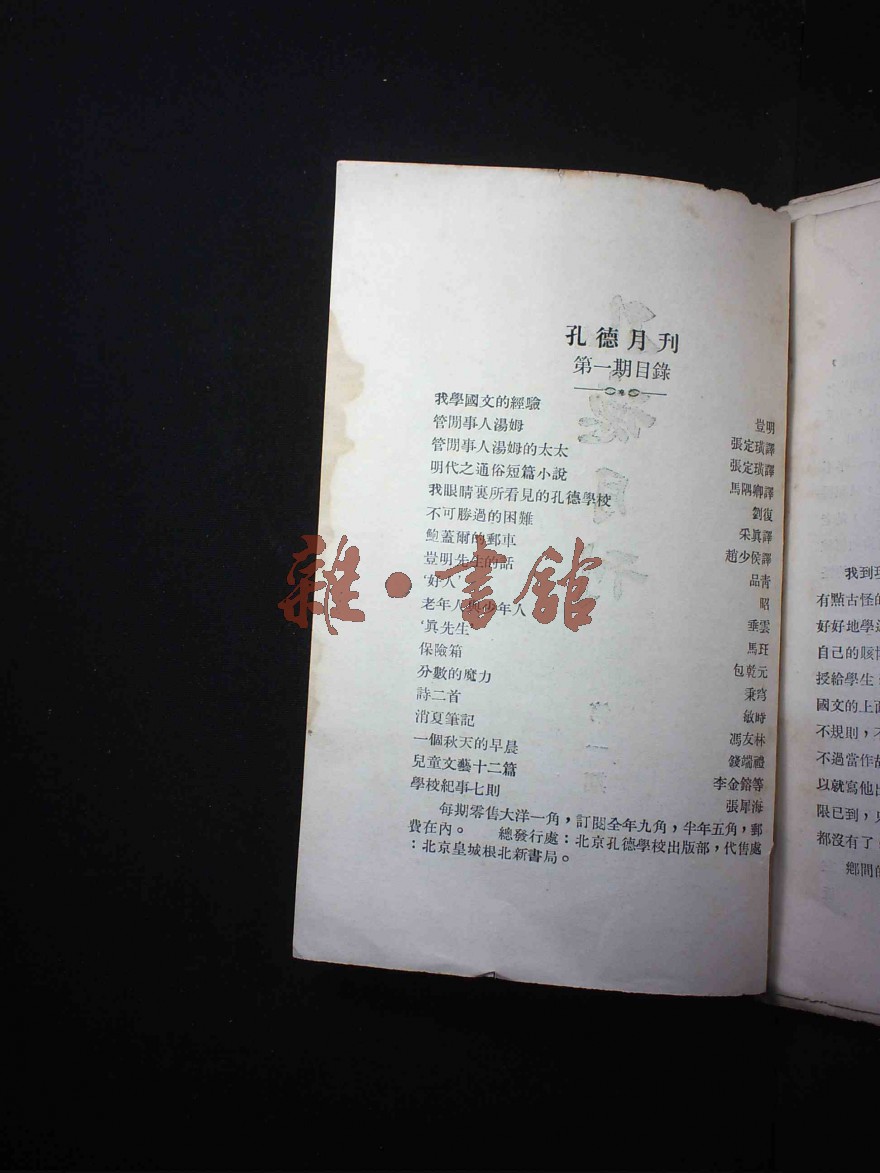 孔德月刊
第一期目錄
我學國文的經驗 豈明
管閒事人湯姆 張定璜譯
管閒事人湯姆的太太 張定璜譯
明代之通俗短篇小說 馬隅卿譯
我眼睛裏所看見的孔德學校 劉復
不可勝過的困難 采眞譯
鮑蓋爾的郵車 趙少侯譯
豈明先生的話 品青
‘好人’ 昭
老年人與少年人 垂雲
‘眞先生’ 馬玨
保險箱 包乾元
分數的魔力 秉穹
詩二首 敏時
消夏筆記 馮友林
一個秋天的早晨 錢端禮
兒童文藝十二篇 李金鎔等
學校紀事七則 張犀海
每期零售大洋一角，訂閱全年九角，半年五角，郵
費在內。 總發行處：北京孔德學校出版部，代售處
：北京皇城根北新書局。
雜·書館
我到
有點古怪的
好好地學
自己的
授給學生
國文的上面
不規則，不
不過當作
以就寫他出
限已到，
都沒有了
鄉間的